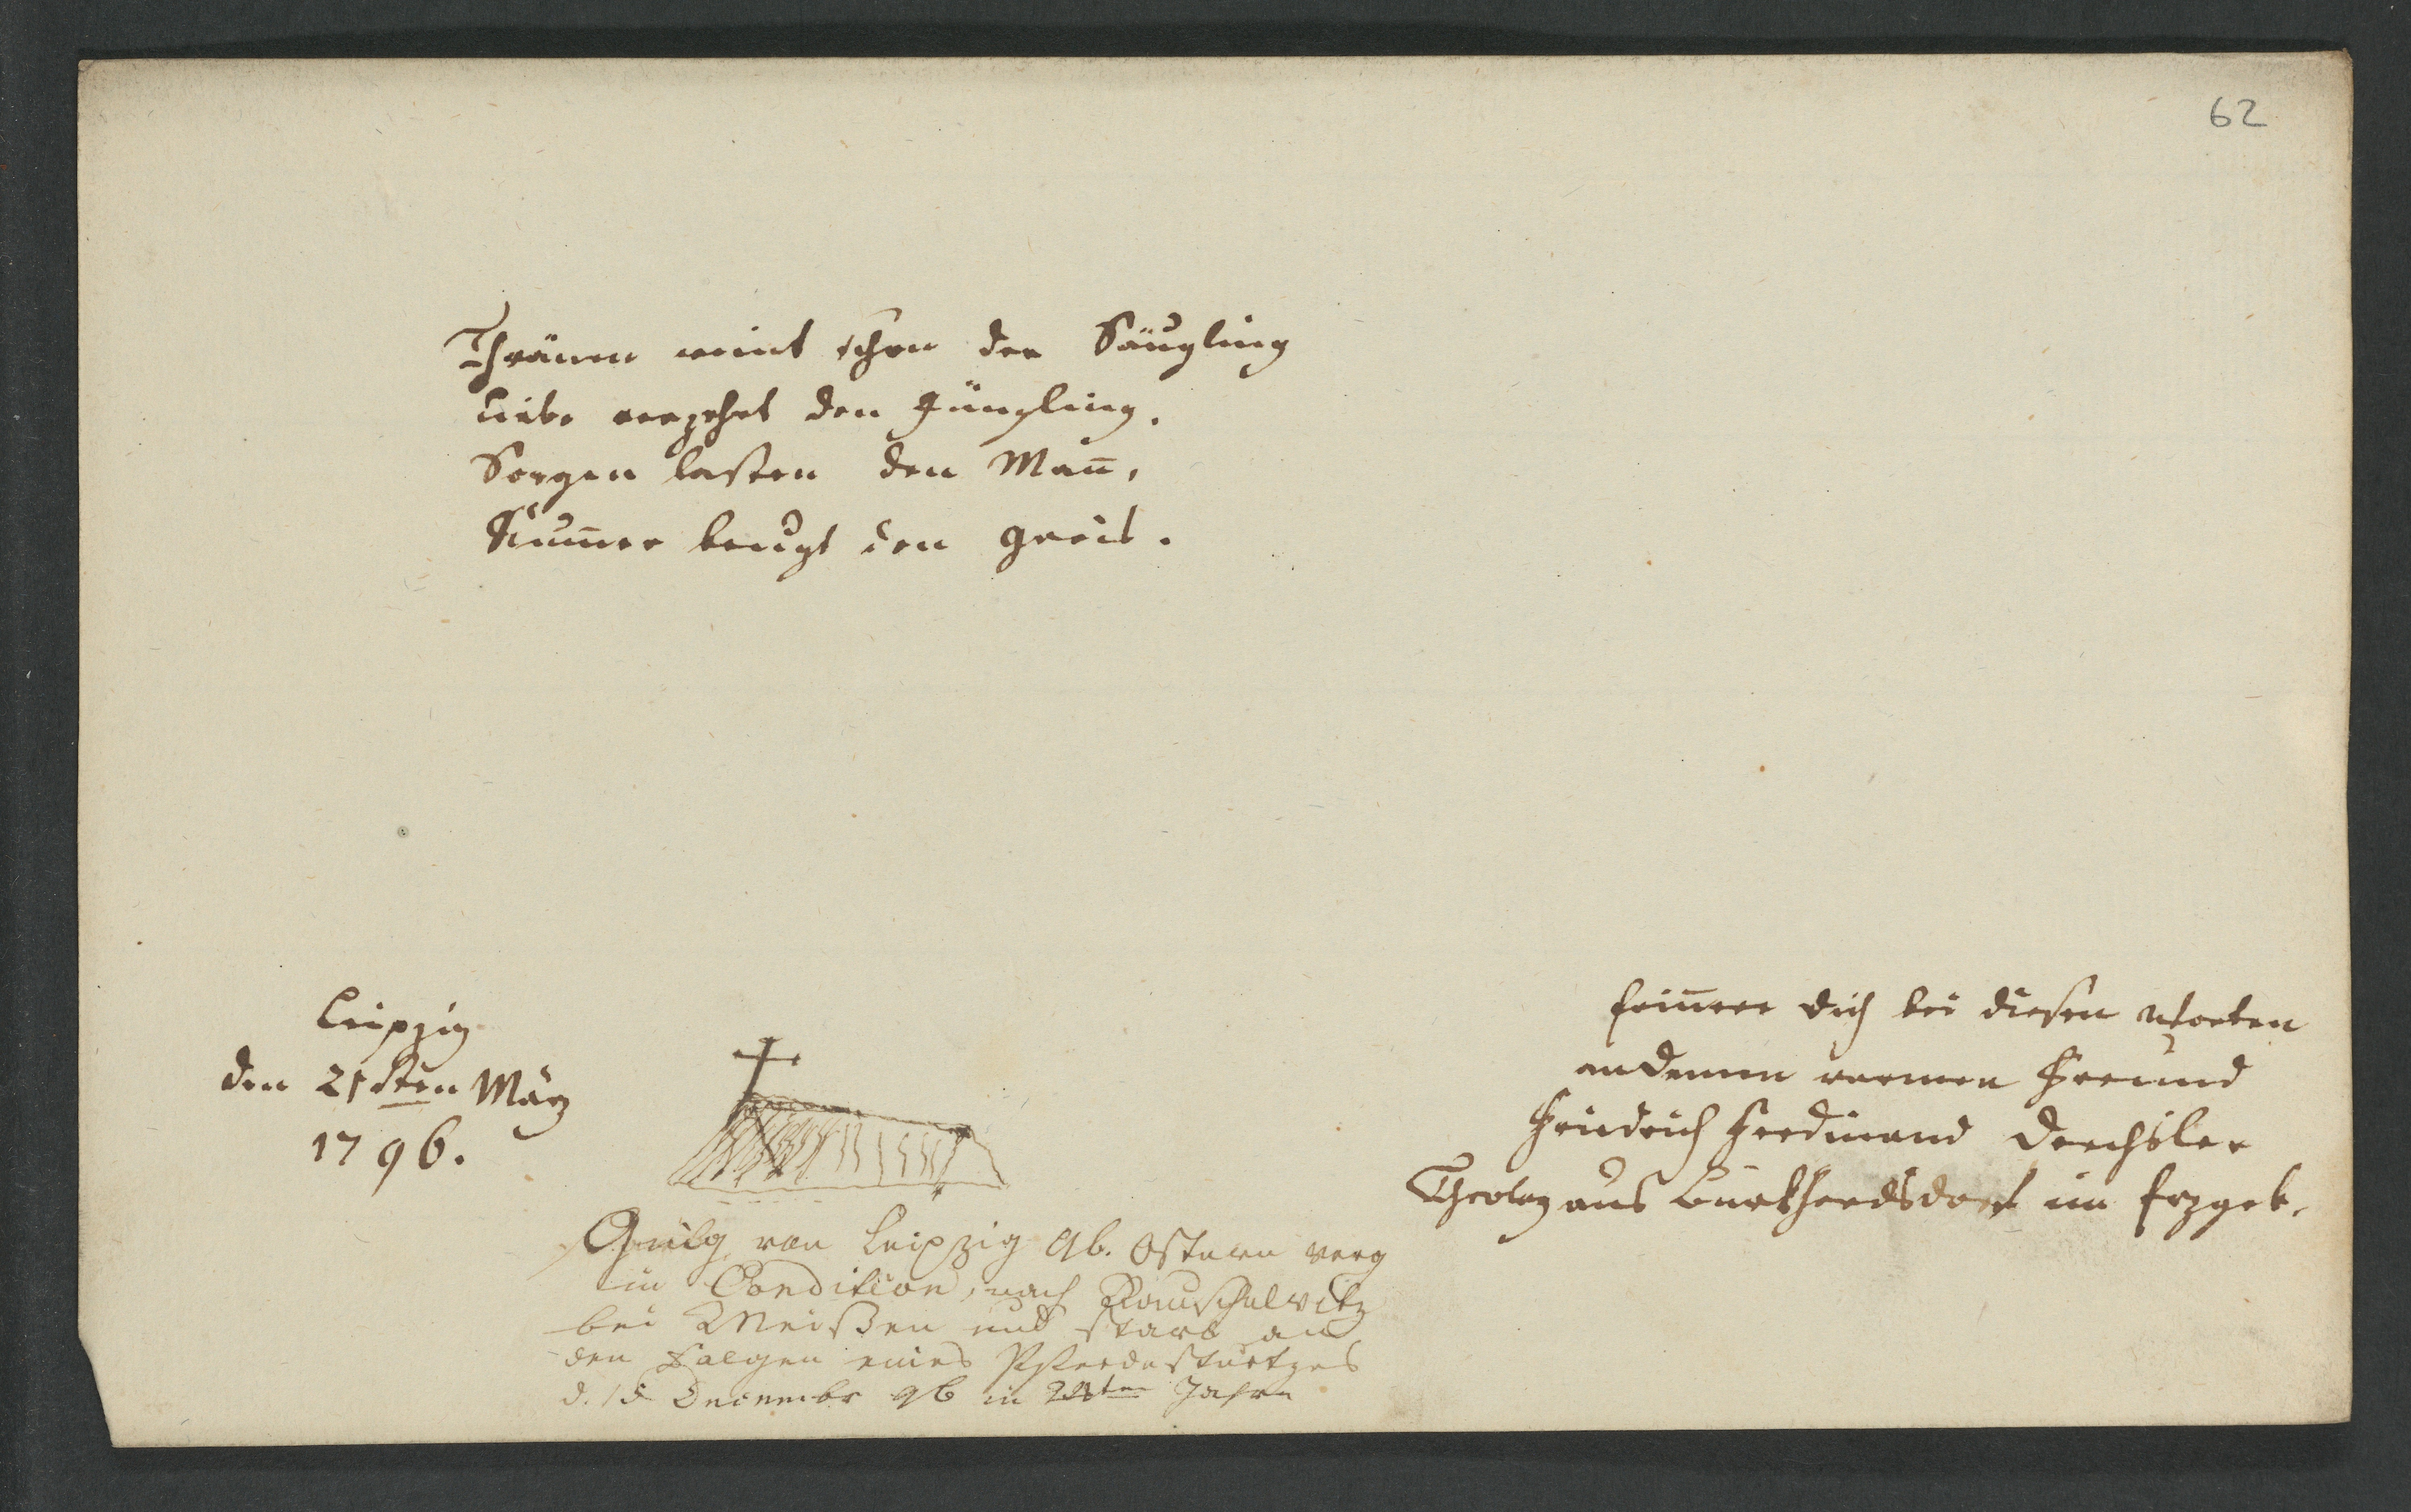 62
Thränen weint schon der Säugling
Liebe verzehrt den Jüngling.
Sorgen lasten den Man̄,
Kum̄er beugt den Greis.
Leipzig
den 21sten März
1796.
Erin̄ere dich bei diesen Worten
an Deinen warmen Freund
Friedrich Ferdinand Drechsler
Theolog aus Burkhardsdorf im Erzgeb.
Ging von Leipzig 96. Ostern weg
in Condition, nach Rauschelwitz
bei Meißen und starb an
den Folgen eines Pferdesturtzes
d. 15 Decembr 96 in Jahre